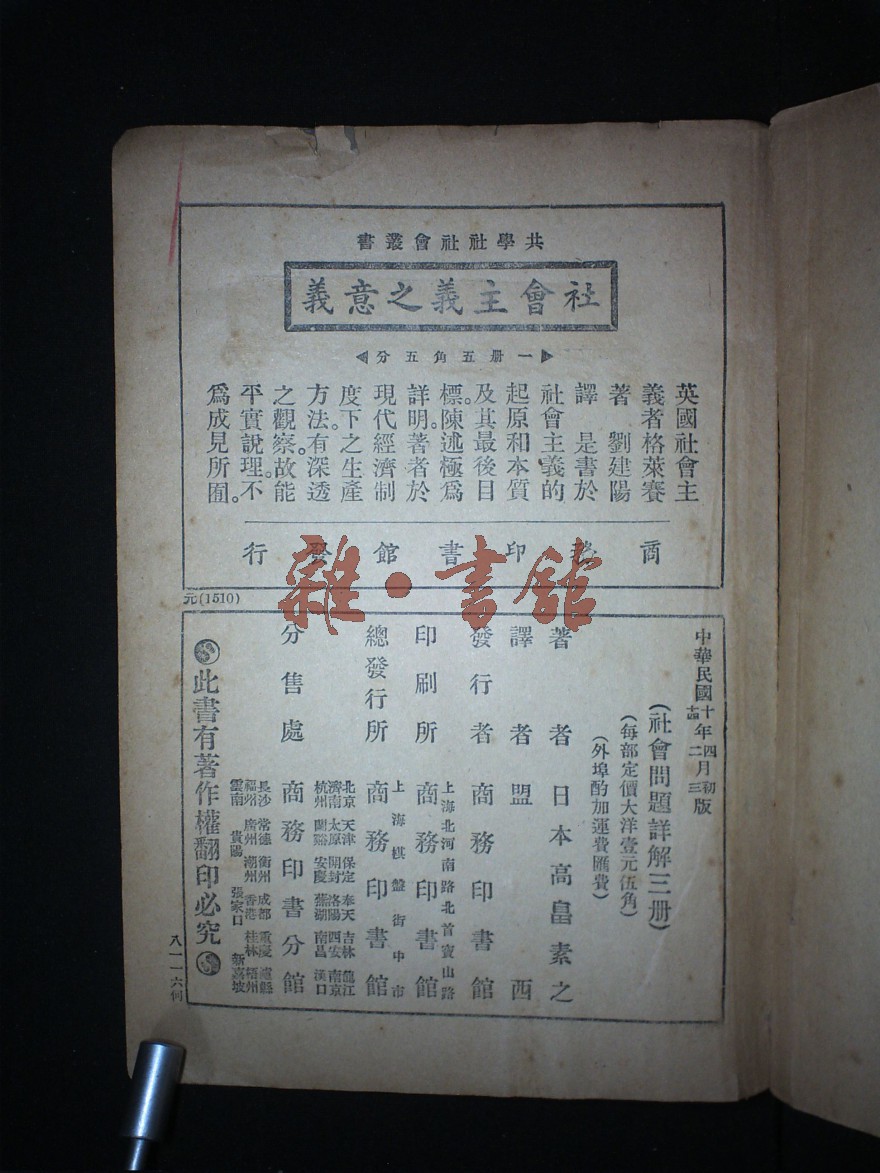 共學社社會叢書
社會主義之意義
一册五角五分
英國社會主
義者格萊賽
著 劉建陽
譯 是書於
社會主義的
起原和本質
及其最後目
標。陳述極爲
詳明。著者於
現代經濟制
度下之生產
方法。有深透
之觀察。故能
平實說理。不
爲成見所囿。
商務印書館發行
元(1510)
雜·書館
中華民國十年四月初版
十四 二 三
(社會問題詳解三册)
(每部定價大洋壹元伍角)
(外埠酌加運費匯費)
著者 日本高畠素之
譯者 盟西
發行者 商務印書館
上海北河南路北首寶山路
印刷所 商務印書館
上海棋盤街中市
總發行所 商務印書館
北京 天津 保定 奉天 吉林 龍江
濟南 太原 開封 洛陽 西安 南京
杭州 蘭谿 安慶 蕪湖 南昌 漢口
分售處 商務印書分館
長沙 常德 衡州 成都 重慶 瀘縣
福州 廣州 潮州 香港 桂林 梧州
雲南 貴陽 張家口 新嘉坡
此書有著作權翻印必究
八一一六何